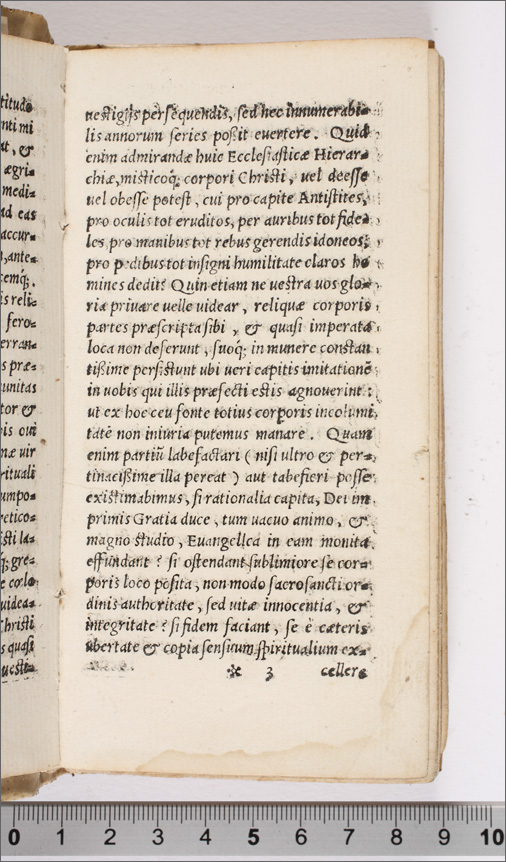 titudo
nti mi
at, &
ægri=
medi=
ad eas
accur=
,ante=
cemq́;.
is reli=
fero=
erran=
s præ=
unitas
tor &
is oui
næ uir
rituali
umpo=
retico=
isti la=
q́; gre=
e cœlo
uidea=
Christi
s quasi
uesti=
uestigijs persequendis, sed nec innumerabi=
lis annorum series poßit euertere. Quid
enim admirandæ huic Ecclesiasticæ Hierar=
chiæ, misticoq́; corpori Christi, uel deesse
uel obesse potest, cui pro capite Antistites,
pro oculis tot eruditos, per auribus tot fide=
les, pro manibus tot rebus gerendis idoneos,
pro pedibus tot insigni humilitate claros ho
mines dedit? Quin etiam ne uestra uos glo=
riæ priuare uelle uidear, reliquæ corporis
partes præscripta sibi, & quasi imperata
loca non deserunt, suoq́; in munere constan
tißime persistunt ubi ueri capitis imitationē
in uobis qui illis præfecti estis agnouerint:
ut ex hoc ceu fonte totius corporis incolumi
tatē non iniuria putemus manare. Quam
enim partiū labefactari (nisi ultro & per=
tinacißime illa pereat) aut tabefieri posse
existimabimus, si rationalia capita, Dei im
primis Gratia duce, tum uacuo animo, &
magno studio, Euangelica in eam monita
effundant? si ostendant sublimiore se cor=
poris loco posita, non modo sacrosancti or=
dinis authoritate, sed uitæ innocentia, &
integritate? si fidem faciant, se è cæteris
ubertate & copia sensuum spiritualium ex=
* 3 cellere
0 1 2 3 4 5 6 7 8 9 10